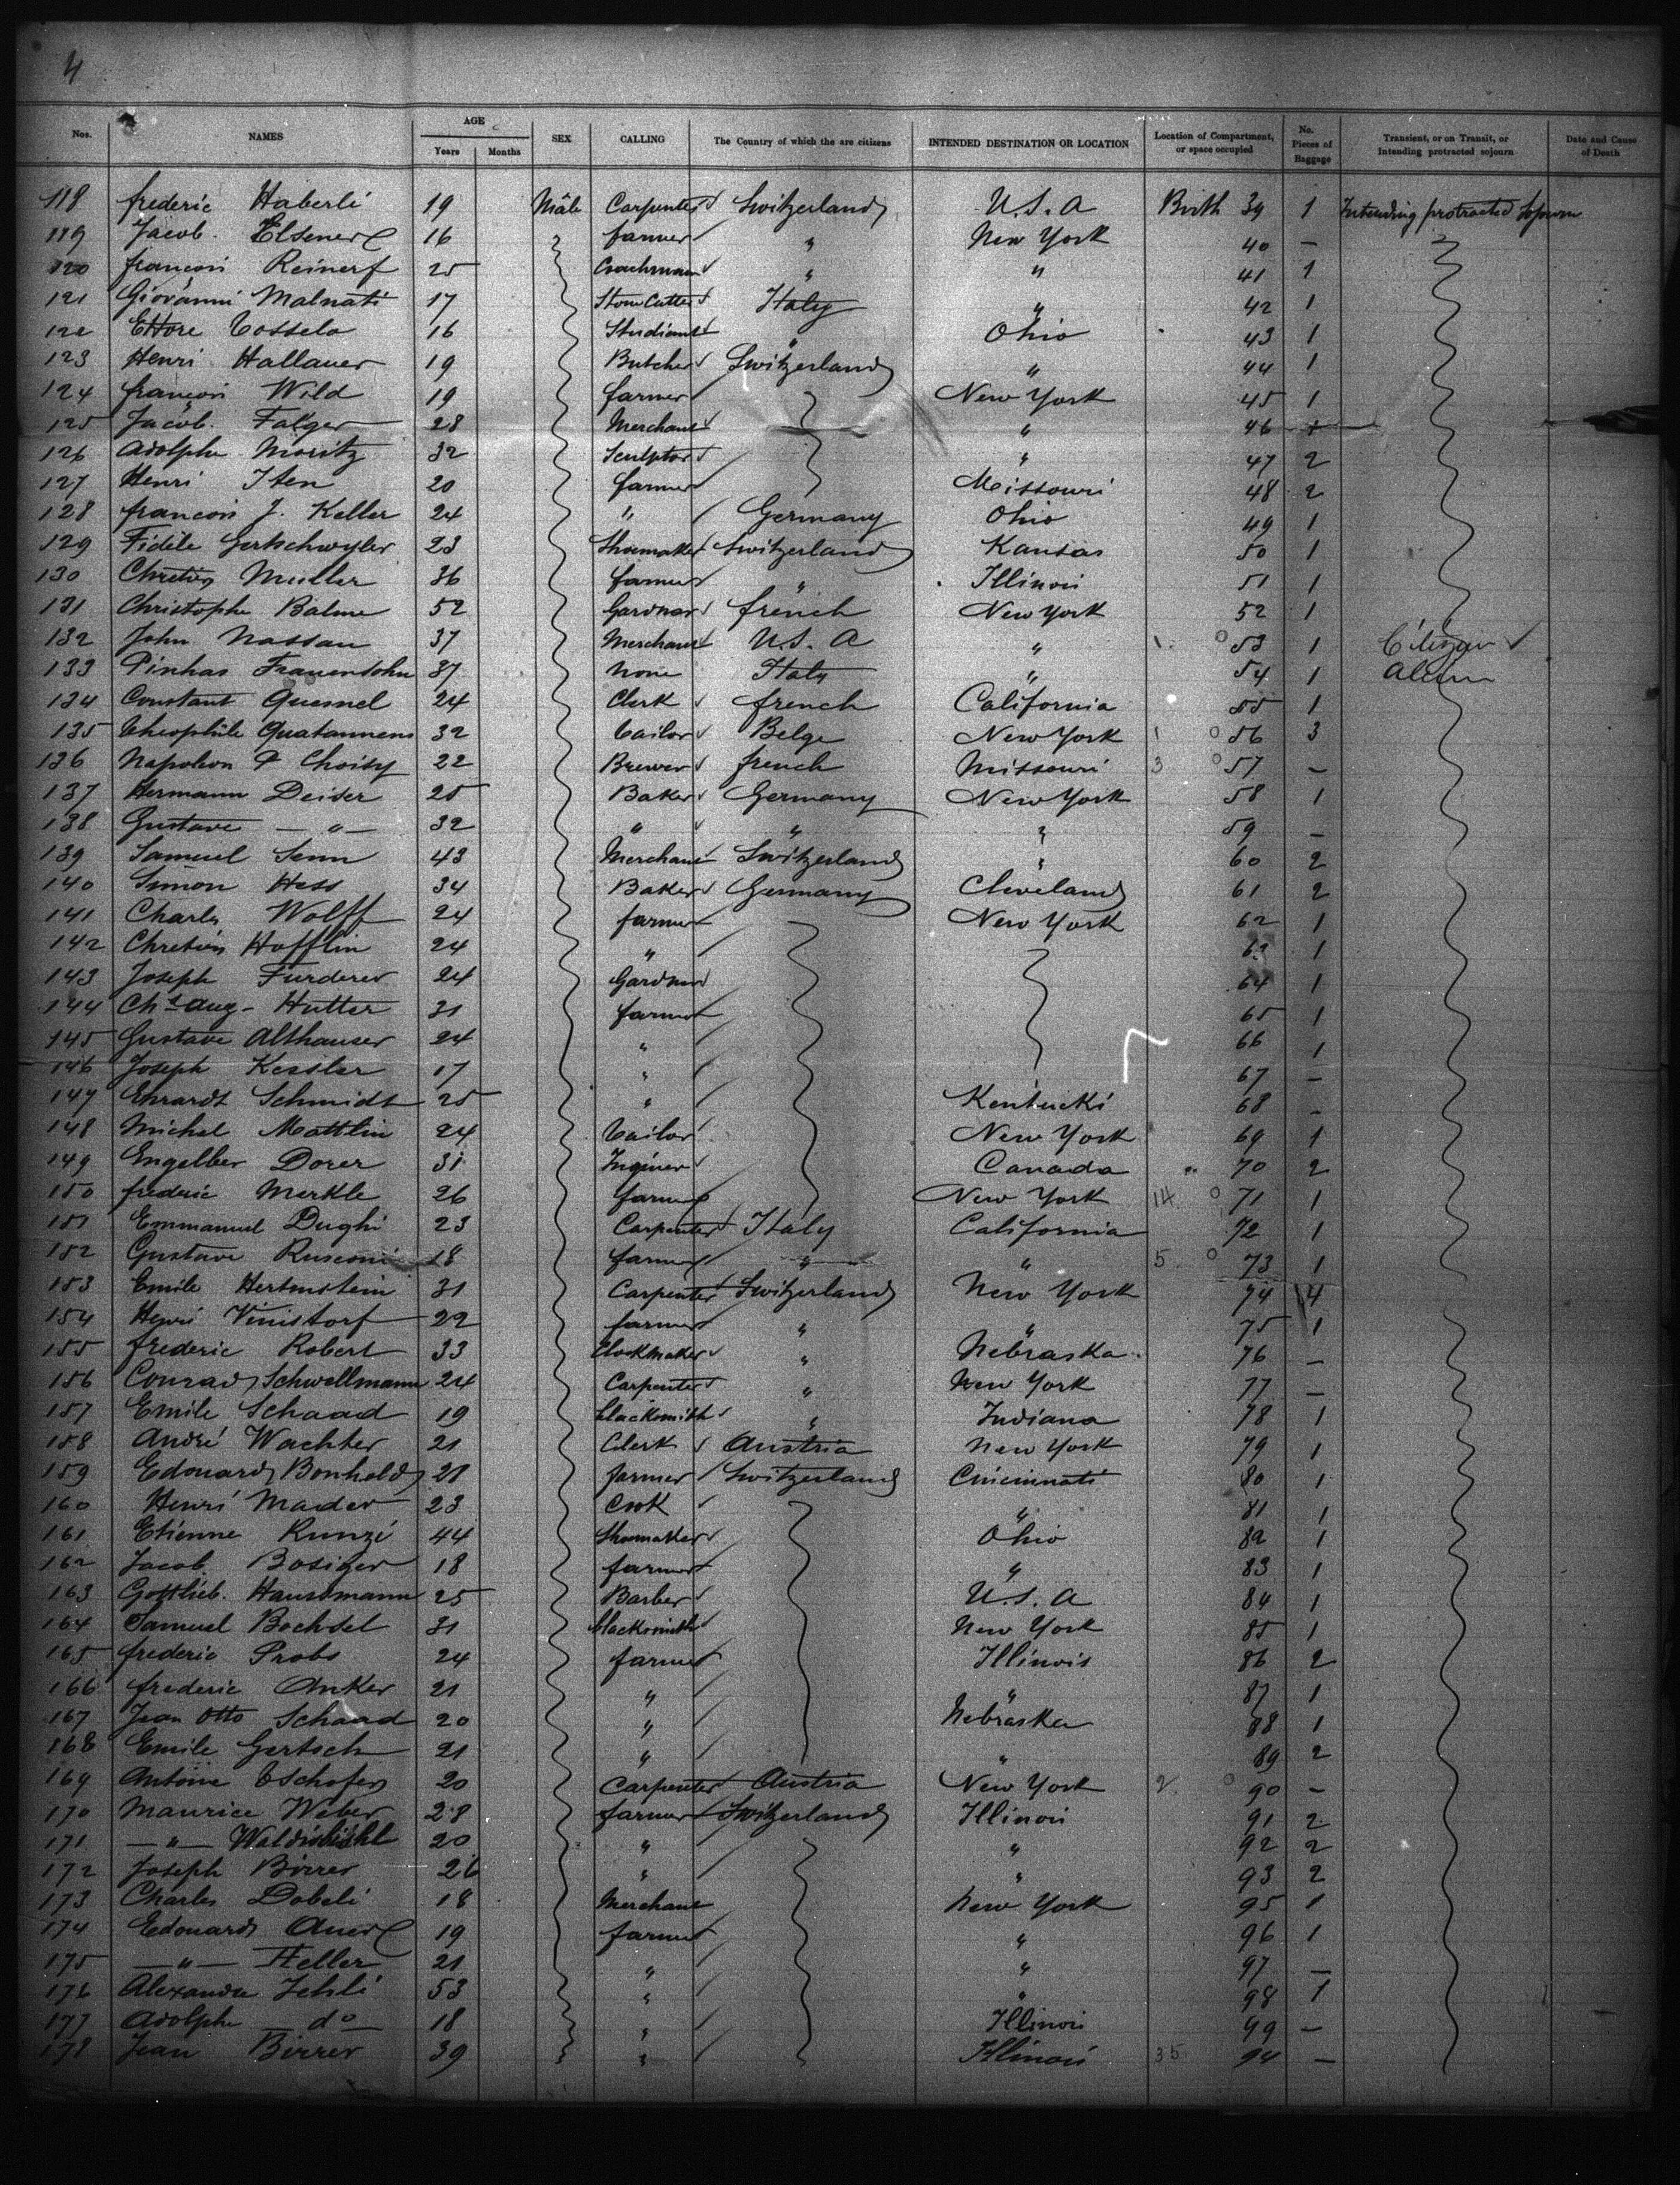 4
Nos. NAMES AGE Years Months SEX CALLING The Country of which the are citizens INTENDED DESTINATION OR LOCATION Location of Compartment, or space occupied No. Pieces of Baggage Transient, or on Transit, or Intending protracted sojourn Date and Cause of Death
118 frederic Haberli 19 Mâle Carpenter Switzerland U.S.A Birth 39 1 Intending protracted Sojourn
119 Jacob. Elsener 16 farmer " New York 40 –
120 francois Reinerf 25 Coachman " " 41 1
121 Giovanni Malnati 17 Stone Cutter Italy " 42 1
122 Ettore Tossela 16 Studiant " Ohio 43 1
123 Henri Hallauer 19 Butcher Switzerland " 44 1
124 francois Wild 19 farmer New York 45 1
125 Jacob. Falger 28 Merchant " 46 1
126 Adolphe Moritz 32 Sculptor " 47 2
127 Henri Iten 20 farmer Missouri 48 2
128 francois J. Keller 24 " Germany Ohio 49 1
129 Fidele Gertschwyler 23 Shoemaker Switzerland Kansas 50 1
130 Chretien Muller 36 farmer " Illinois 51 1
131 Christophe Balme 52 Gardner french New York 52 1
132 John Nassau 37 Merchant U.S.A " 1 0 53 1 Citizen
133 Pinhas Frauensohn 37 None Italy " 54 1 Alien
134 Constant Quesnel 24 Clerk french California 55 1
135 Theophile Quatannens 32 Tailor Belge New York 1 0 56 3
136 Napoleon P Choisy 22 Brewer french Missouri 3 0 57 –
137 Hermann Deiser 25 Baker Germany New York 58 1
138 Gustave –"– 32 " " " 59 –
139 Samuel Senn 43 Merchant Switzerland " 60 2
140 Simon Hess 34 Baker Germany Cleveland 61 2
141 Charles Wolff 24 farmer New York 62 1
142 Chretien Hofflin 24 " 63 1
143 Joseph Furderer 24 Gardner 64 1
144 Chs Aug- Hutter 31 farmer 65 1
145 Gustave Althauser 24 " 66 1
146 Joseph Kessler 17 " 67 –
147 Ehrardt Schmidt 25 " Kentucki 68 –
148 Michel Mattlin 24 Tailor New York 69 1
149 Engelber Dorer 31 Inginer Canada 70 2
150 frederic Merkle 26 farmer New York 14 0 71 1
151 Emmanuel Dughi 23 Carpenter Italy California 72 1
152 Gustave Rusconi 18 farmer " " 5 0 73 1
153 Emile Hertenstein 31 Carpenter Switzerland New York 74 4
154 Henri Vinistorf 22 farmer " " 75 1
155 frederic Robert 33 Clockmaker " Nebraska 76 –
156 Conrad Schwellmann 24 Carpenter " New York 77 –
157 Emile Schaad 19 blacksmith " Indiana 78 1
158 André Wachter 21 Clerk Austria New York 79 1
159 Edouard Bonhold 21 farmer Switzerland Cincinnati 80 1
160 Henri Mader 23 Cook " 81 1
161 Etienne Kunzi 44 Shoemaker Ohio 82 1
162 Jacob Bosiger 18 farmer " 83 1
163 Gottlieb. Haussmann 25 Barber U.S.A 84 1
164 Samuel Bochsel 31 blacksmith New York 85 1
165 frederic Probs 24 farmer Illinois 86 2
166 frederic Anker 21 " " 87 1
167 Jean Otto Schaad 20 " Nebraska 88 1
168 Emile Gertsch 21 " " 89 2
169 Antoine Tschofen 20 Carpenter Austria New York 2 0 90 –
170 Maurice Weber 28 farmer Switzerland Illinois 91 2
171 –"– Waldisbühl 20 " " 92 2
172 Joseph Birrer 26 " " 93 2
173 Charles Dobeli 18 Merchant New York 95 1
174 Edouard Auer 19 farmer " 96 1
175 –"– Heller 21 " " 97 –
176 Alexandre Jehli 53 " " 98 1
177 Adolphe do 18 " Illinois 99 –
178 Jean Birrer 39 " Illinois 35 94 –